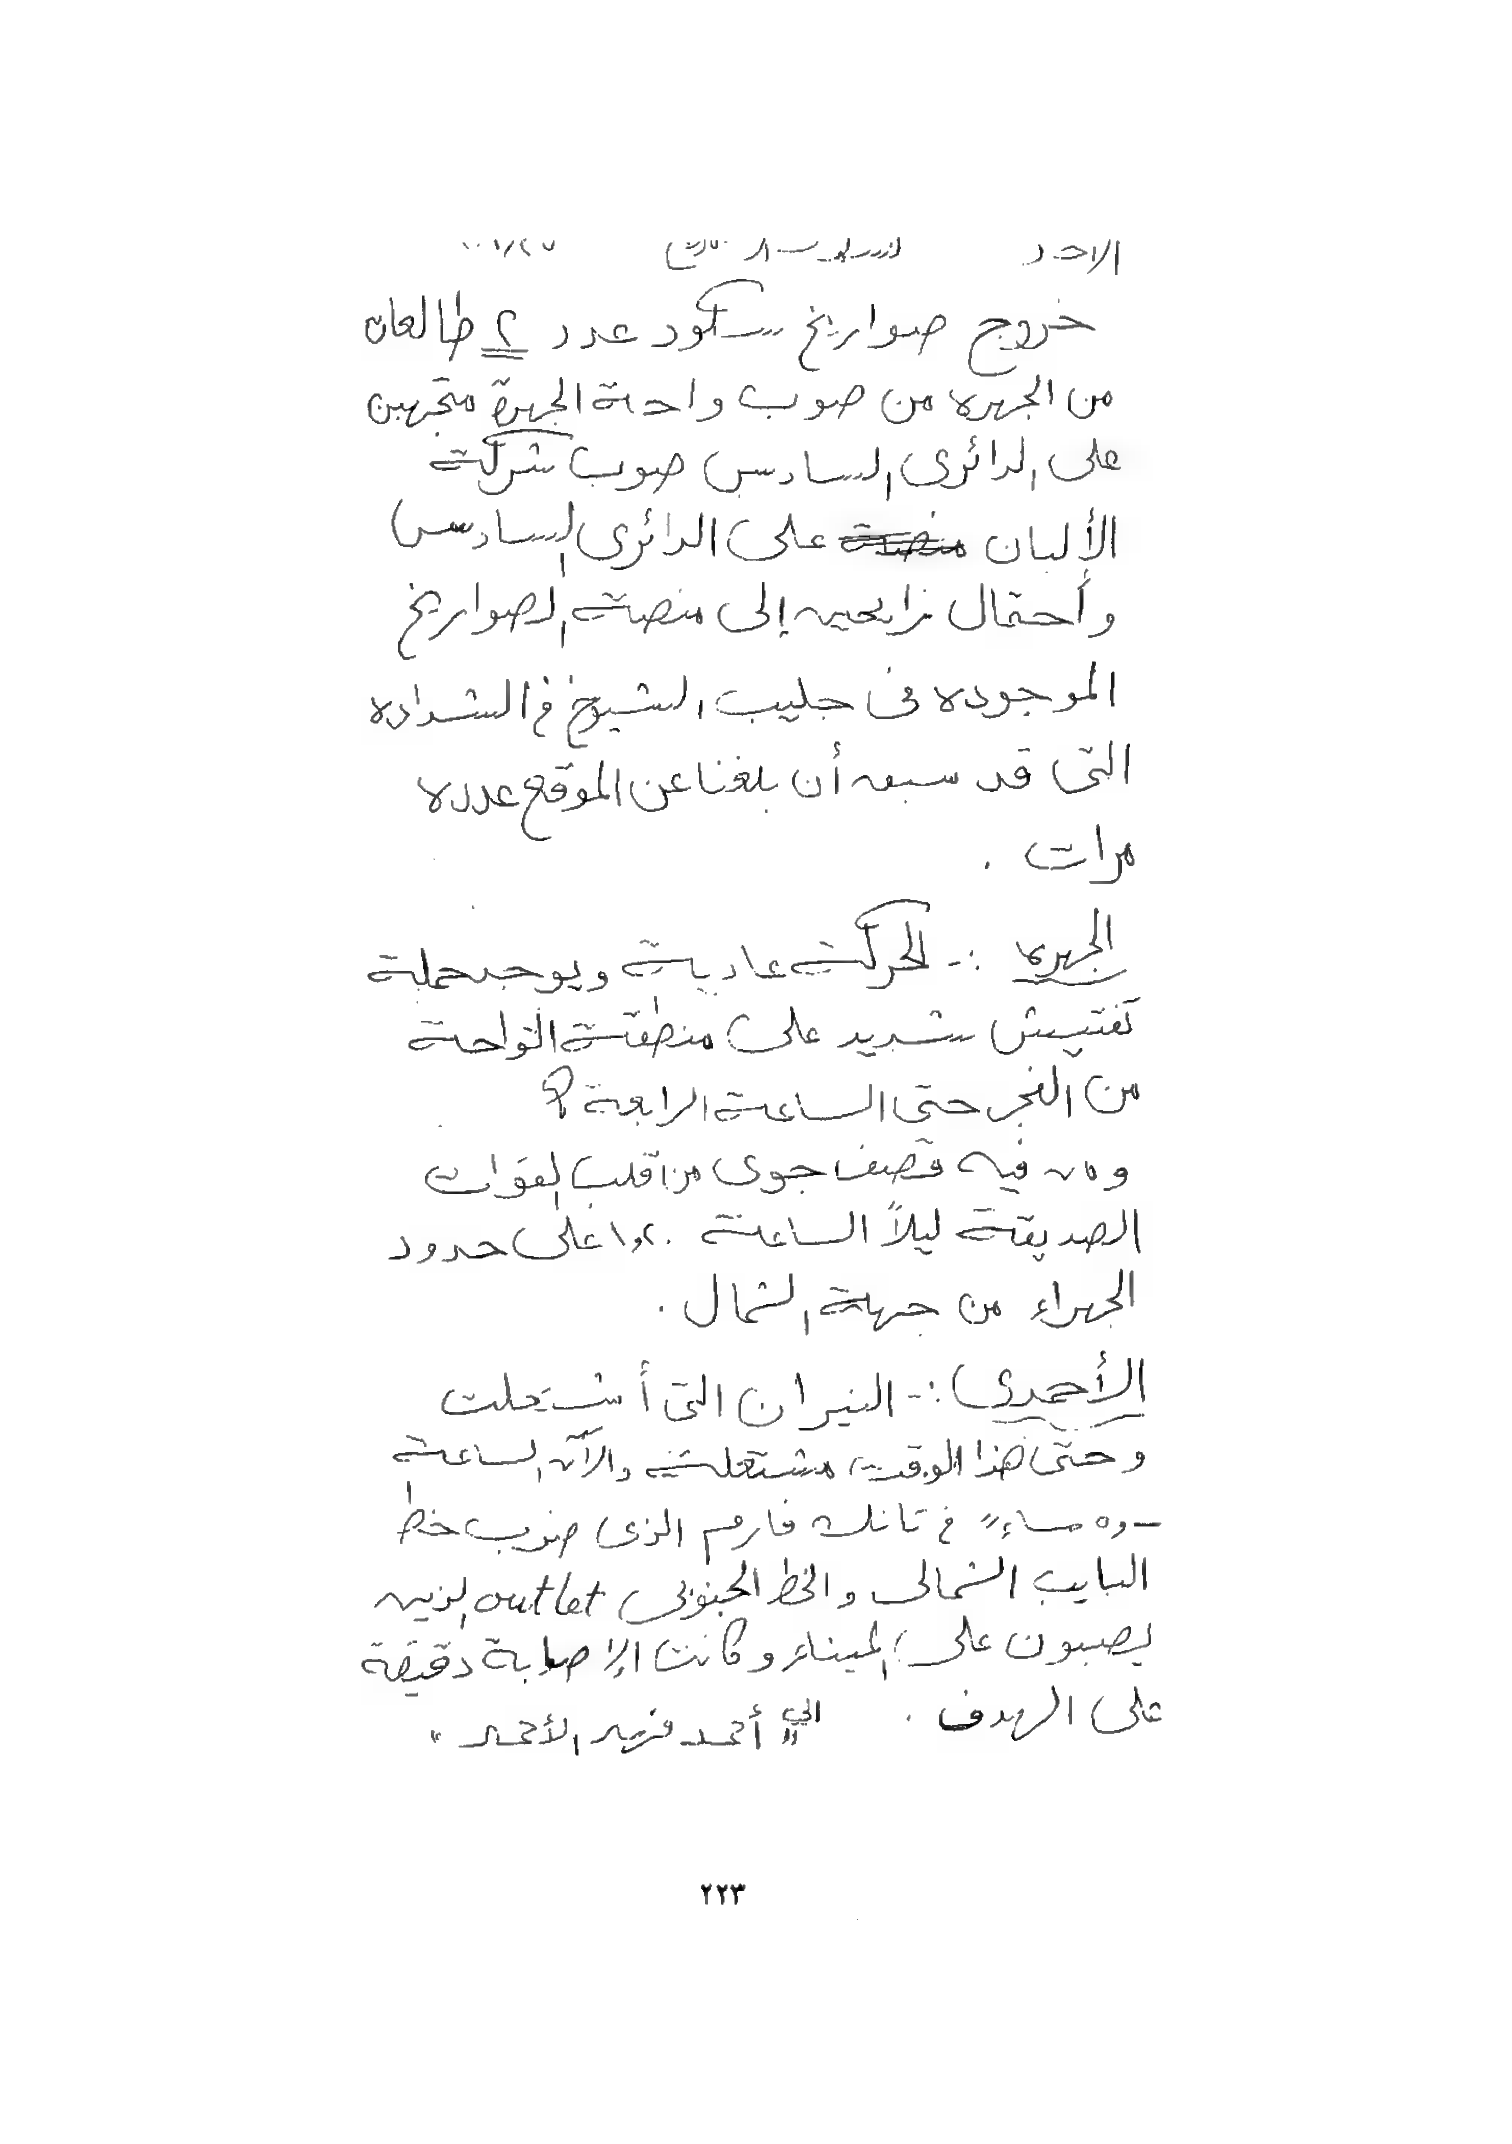 الاحد
خروج صواريخ سكود عدد ٢ طالعات
من الجهره من صوب واحة الجهرة متجهين
على الدائرى السادس صوب شركة
الألبان على الدائرى السادس
وأحتمال رايحين إلى منصة الصواريخ
الموجوده فى جليب الشيوخ فى الشداده
التى قد سبق أن بلغنا عن الموقع عدده
مرات .
الجهره :- الحركة عادية ويوجد حملة
تفتيش شديد على منطقة الواحة
من الفجر حتى الساعة الرابعة
فيه قصف جوى من قبل القوات
الصديقة ليلاً الساعة على حدود
الجهراء من جهة الشمال .
الأحمدي :- النيران التى أشتعلت
وحتى هذا الوقت مشتعلة والآن الساعة
مساءً فى تانك فارم الذى صوب خط
البايب الشمالى والخط الجنوبى outlet الذين
يصبون على الميناء وكانت الإصابة دقيقة
على الهدف . الى أحمد الأحمد "
٢٢٣